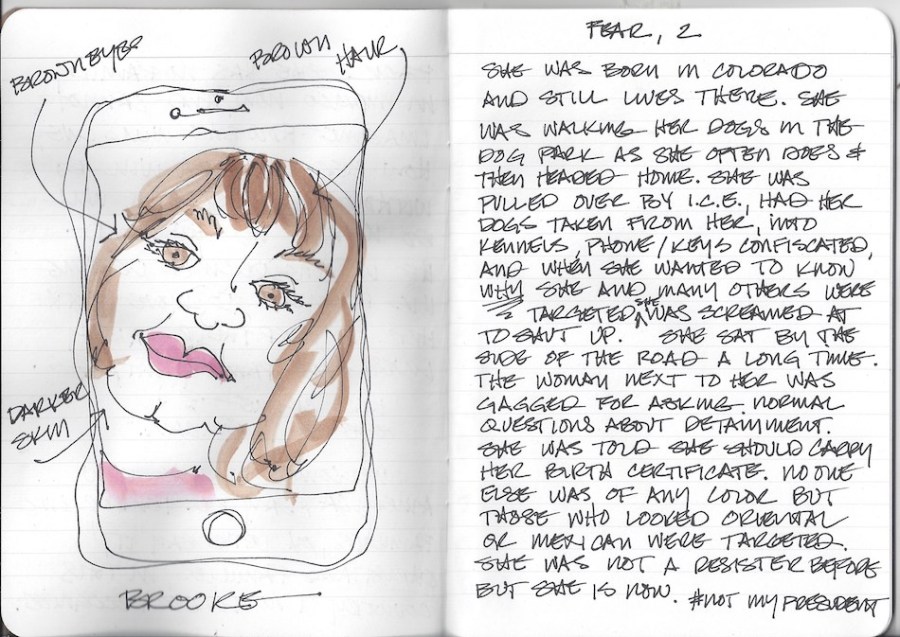 BROWN EYES
BROWN
HAIR
DARKER
SKIN
BROOKE
FEAR, 2
SHE WAS BORN IN COLORADO
AND STILL LIVES THERE. SHE
WAS WALKING HER DOGS IN THE
DOG PARK AS SHE OFTEN DOES &
THEN HEADED HOME. SHE WAS
PULLED OVER BY I.C.E., HAD HER
DOGS TAKEN FROM HER, INTO
KENNELS, PHONE/KEYS CONFISCATED,
AND WHEN SHE WANTED TO KNOW
WHY SHE AND MANY OTHERS WERE
TARGETED, SHE WAS SCREAMED AT
TO SHUT UP. SHE SAT BY THE
SIDE OF THE ROAD A LONG TIME.
THE WOMAN NEXT TO HER WAS
GAGGED FOR ASKING NORMAL
QUESTIONS ABOUT DETAINMENT.
SHE WAS TOLD SHE SHOULD CARRY
HER BIRTH CERTIFICATE. NO ONE
ELSE WAS OF ANY COLOR BUT
THOSE WHO LOOKED ORIENTAL
OR MEXICAN WERE TARGETED.
SHE WAS NOT A RESISTER BEFORE
BUT SHE IS NOW. #NOT MY PRESIDENT